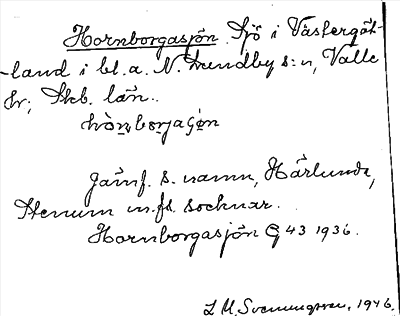 Hornborgasjön. Sjö i Västergöt-
-land i bl.a. N. Lundby s:n, Valle
hr; Skb. län.
hòn̥borjaʃø̀n
Jämf. s. namn, Härlunda,
Stenum m.fl. socknar.
Hornborgasjön G 43 1936.
L. M. Svenungsson, 1946.